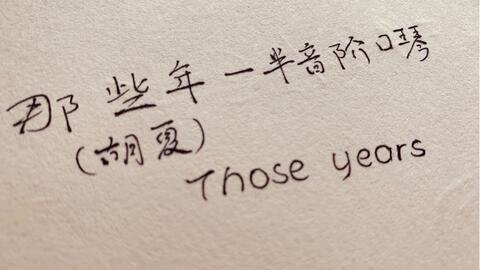 那些年一半音阶口琴
(胡夏)
Those years